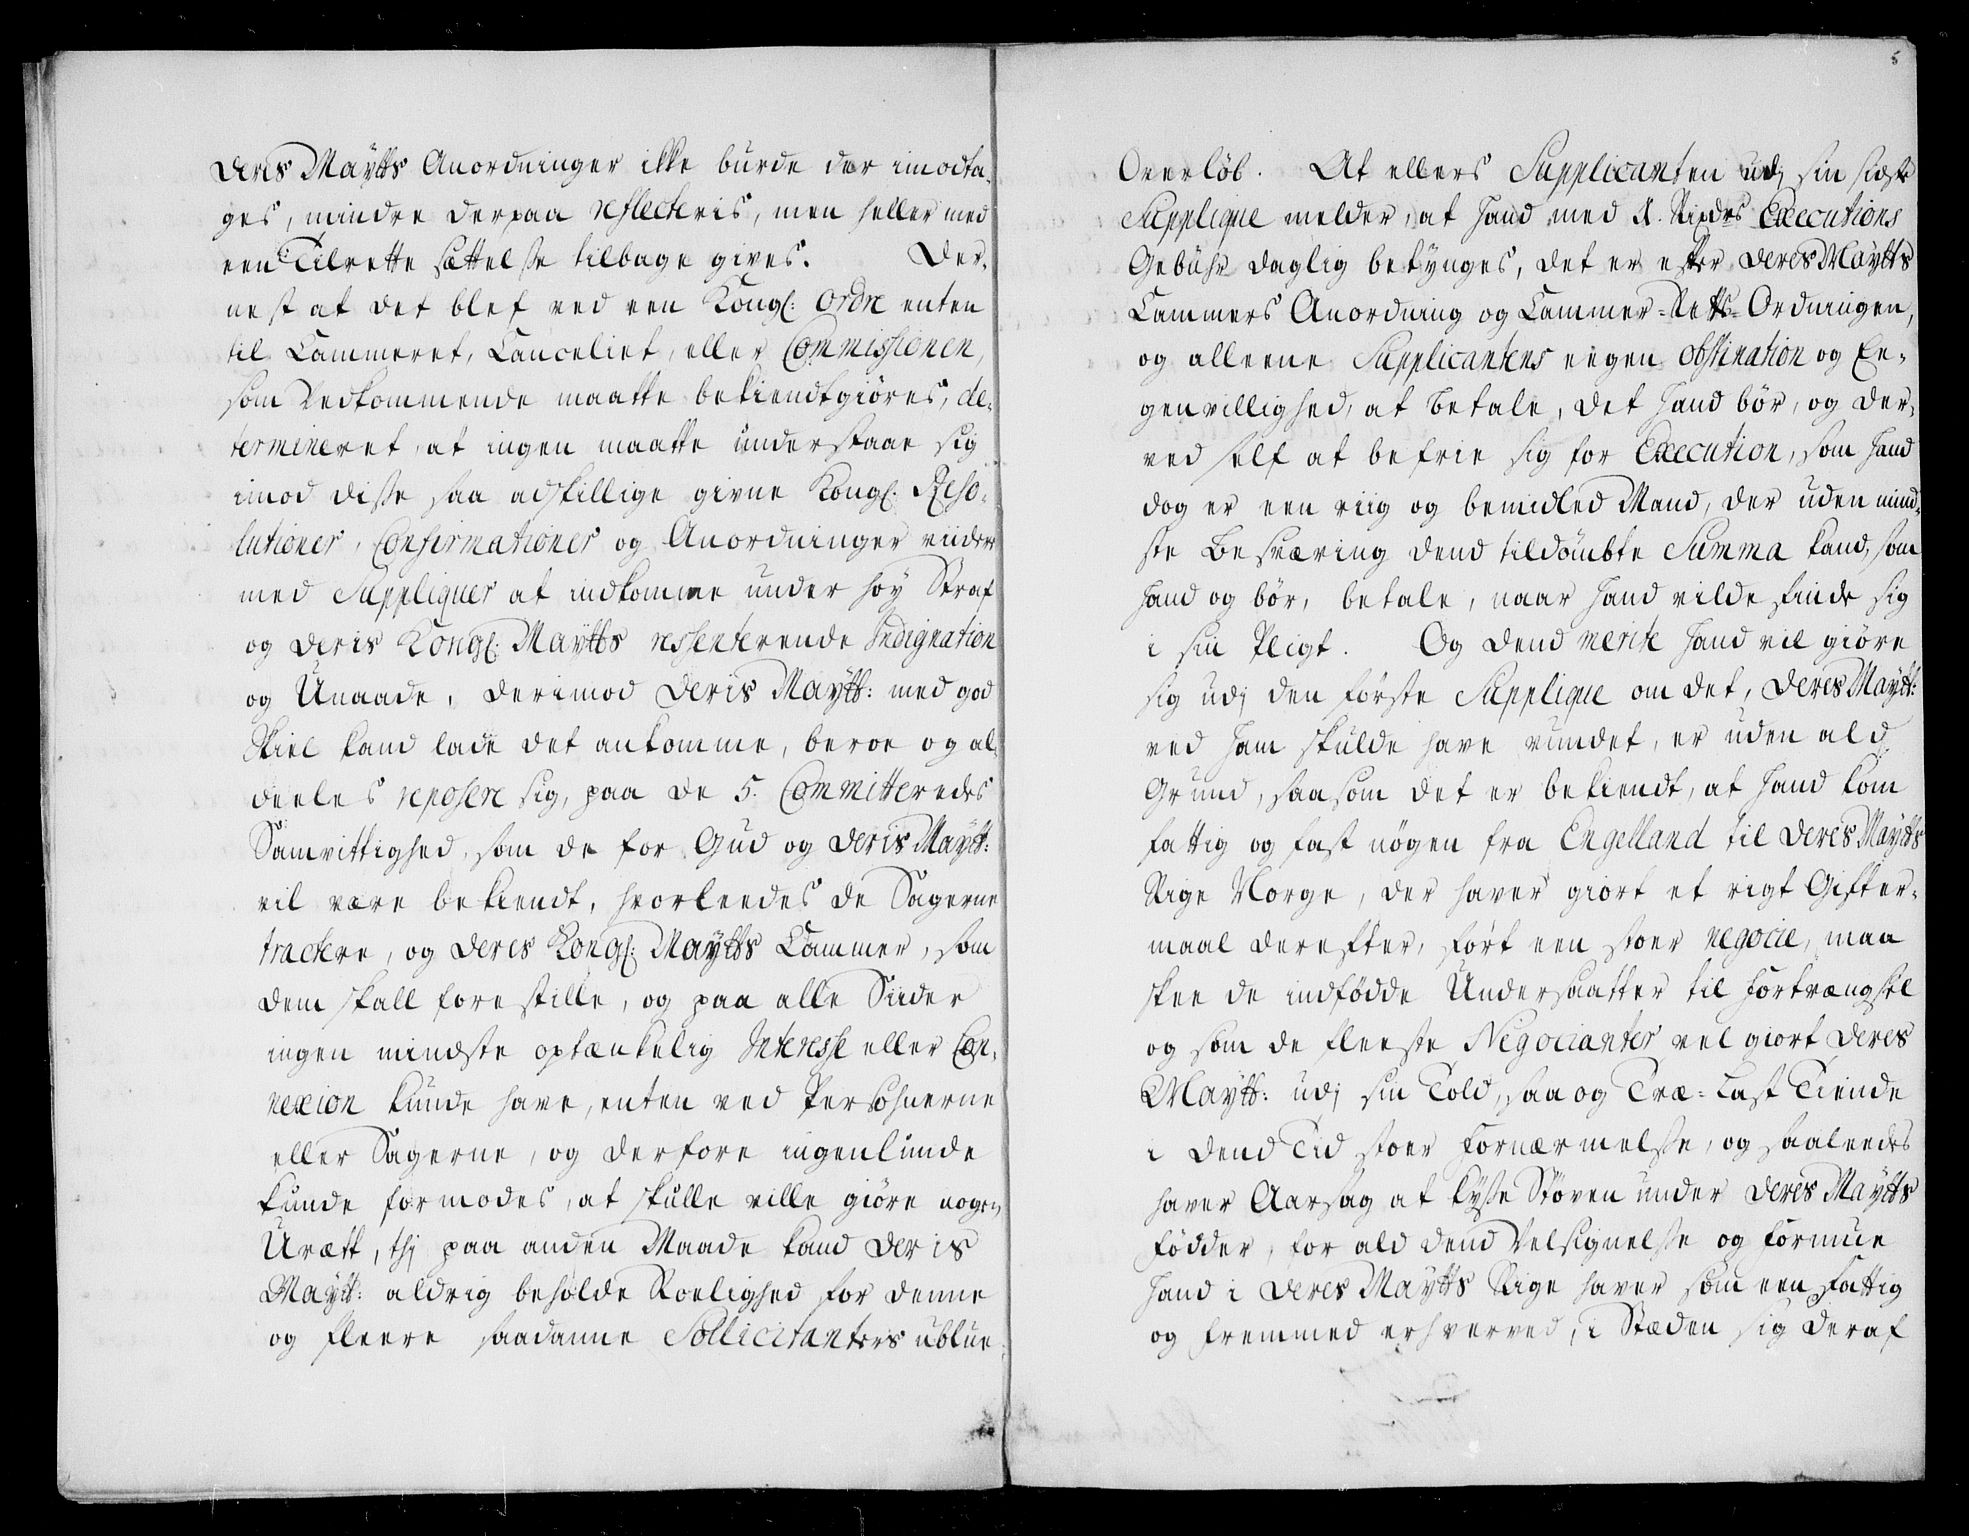 Deris Maÿtts Anordninger ikke burde der imodta-
ges, mindre derpaa reflecteris, men heller med
een Tilrette sættelsse tilbage gives. Der-
nest at det blef ved een Kongl: Ordre enten
til Cammeret, Cancelliet, eller Commissionen,
som Vedkommende maatte bekiendtgiöres, de-
termineret, at ingen maatte understaae sig
imod disse saa adskillige givne Kongl: Reso-
lutioner, Confirmationer og Anordninger viidere
med Suppliquer at indkomme under höy Straf
og Deris Kongl: Maÿtts ressenterende Indignation
og Unaade, derimod Deris Maÿtt: med god
Skiel kand lade det ankomme, beroe og al-
deeles reposere sig, paa de 5. Committeredes
Samvittighed, som de for Gud og Deris Maÿtt:
vil være bekiendt, hvorleedes de Sagerne
tractere, og Deres Kongl: Maÿtts Cammer, som
dem skall forestille, og paa alle Siider
ingen mindste optænkelig Interesse eller Con-
nexion kunde have, enten ved Persohnerne
eller Sagerne, og derfore ingenlunde
kunde formodes, at skulle ville giöre nogen
Urætt, thj paa anden Maade kand Deris
Maÿtt: aldrig beholde Roelighed for denne
og fleere saadanne Sollicitanters ublue
5
Overlöb. At ellers Supplicanten udj sin sidste
Supplique melder, at hand med Rixdrs Executions
Gebühr daglig betÿnges, det er efter Deres Maÿtts
Cammers Anordning og Cammer-Retts-Ordningen,
og alleene Supplicantens eegen obstination og Ee-
genvillighed, at betale, det hand bör, og der-
ved self at befrie sig for Execution, som hand
dog er een riig og bemidled Mand, der uden mind-
ste Besværing dend tildömbte Summa kand, som
hand og bör, betale, naar hand vilde finde sig
i sin Pligt. Og dend merite hand vil giöre
sig udj den förste Supplique om det, Deres Maÿtt:
ved ham skulde have vundet, er uden ald
Grund, saasom det er bekiendt, at hand kom
fattig og fast nögen fra Engelland til Deres Maÿtts
Rige Norge, der haver giort et rigt Gifter-
maal derefter, fört een stoer negocie, maa
skee de indfödde Undersaatter til Fortrængsel
og som de fleeste Negocianter vel giort Deres
Maÿtt: udj sin Told, saa og Træ-Last Tiende
i dend Tid stoer Fornærmelsse, og saaleedes
haver Aarsag at kÿsse Stöven under Deres Maÿtts
Födder, for ald dend Velsignelsse og Formue
hand i Deres Maÿtts Rige haver som een fattig
og fremmed erhverved, i Stæden sig deraf